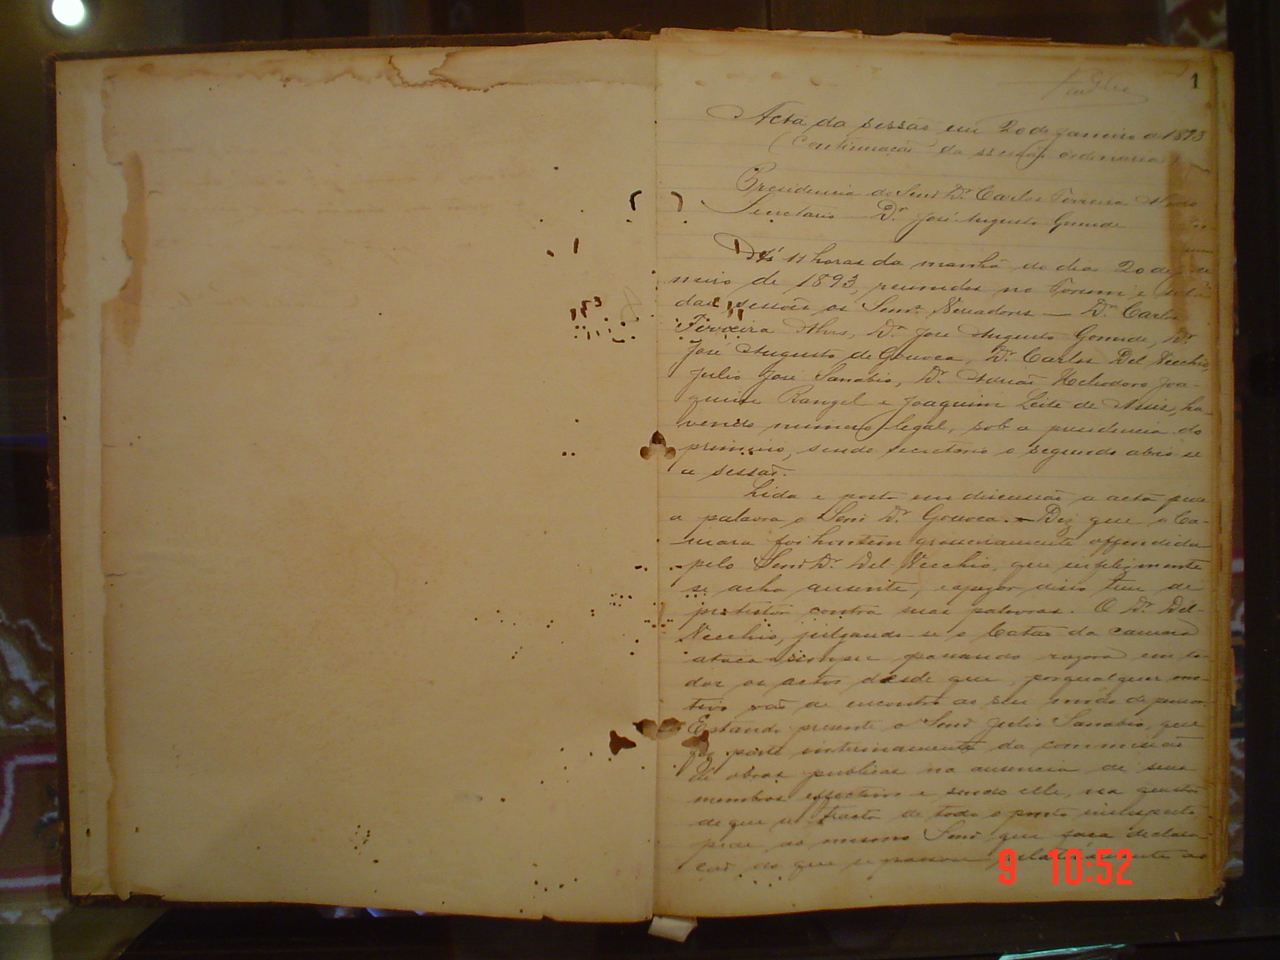 1
Acta da sessão em 20 de janeiro de 1893
(Continuação da sessão ordinaria
Presidencia do Senr Dr. Carlos Ferreira Alves
Secretario Dr. José Augusto Gomide
Ás 11 horas da manhã do dia 20 de ja-
neiro de 1893, reunidos no Forum e sala
das sessões os Senrs. Vereadores — Dr. Carlos
Ferreira Alves, Dr. José Augusto Gomide, Dr.
José Augusto de Gouvea, Dr. Carlos Del Vecchio,
Julio José Sanabio, Dr. Adrião Heliodoro Joa-
quim Rangel e Joaquim Leite de Assis, ha-
vendo numero legal, sob a presidencia do
primeiro, sendo secretario o segundo abrio-se
a sessão.
Lida e posta em discussão a acta pede
a palavra o Senr Dr. Gouvea. — Diz que a Ca-
mara foi hontem grosseiramente offendida
pelo Senr Dr. Del Vecchio, que infelizmente
se acha ausente, e apezar disso tem de
protestar contra suas palavras. O Dr. Del-
Vecchio, julgando-se o Catão da camara
ataca sempre passando em to-
dos os actos desde que, por qualquer mo-
tivo vão de encontro ao seu modo de pensar.
Estando presente o Senr Julio Sanabio, que
fez parte interinamente da commissão
de obras publicas na ausencia de seus
membros effectivos e sendo elle, na questão
de que se tracta de todo o ponto insuspeito
pede ao mesmo Senr que faça declara-
ção do que se passou relativamente ao
9 10:52